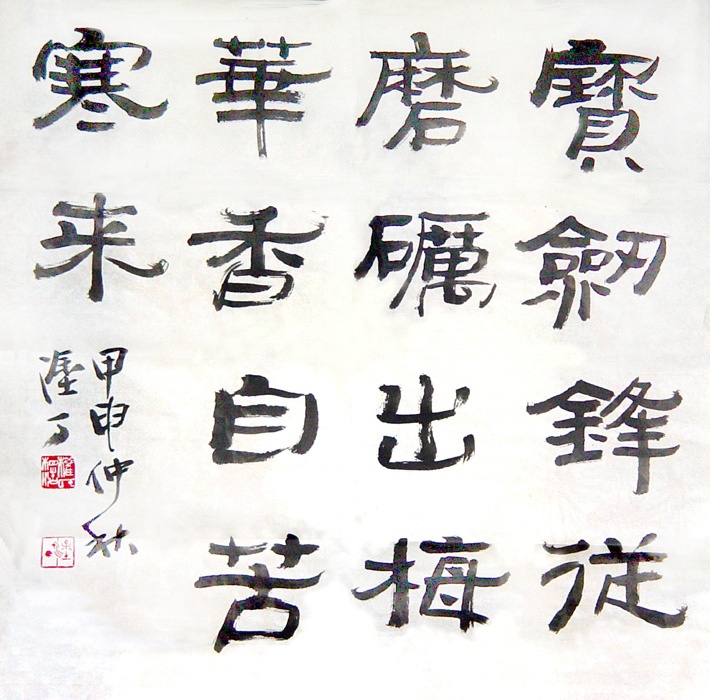 寶劔鋒従
磨礪出梅
華香自苦
寒来
甲申仲秋